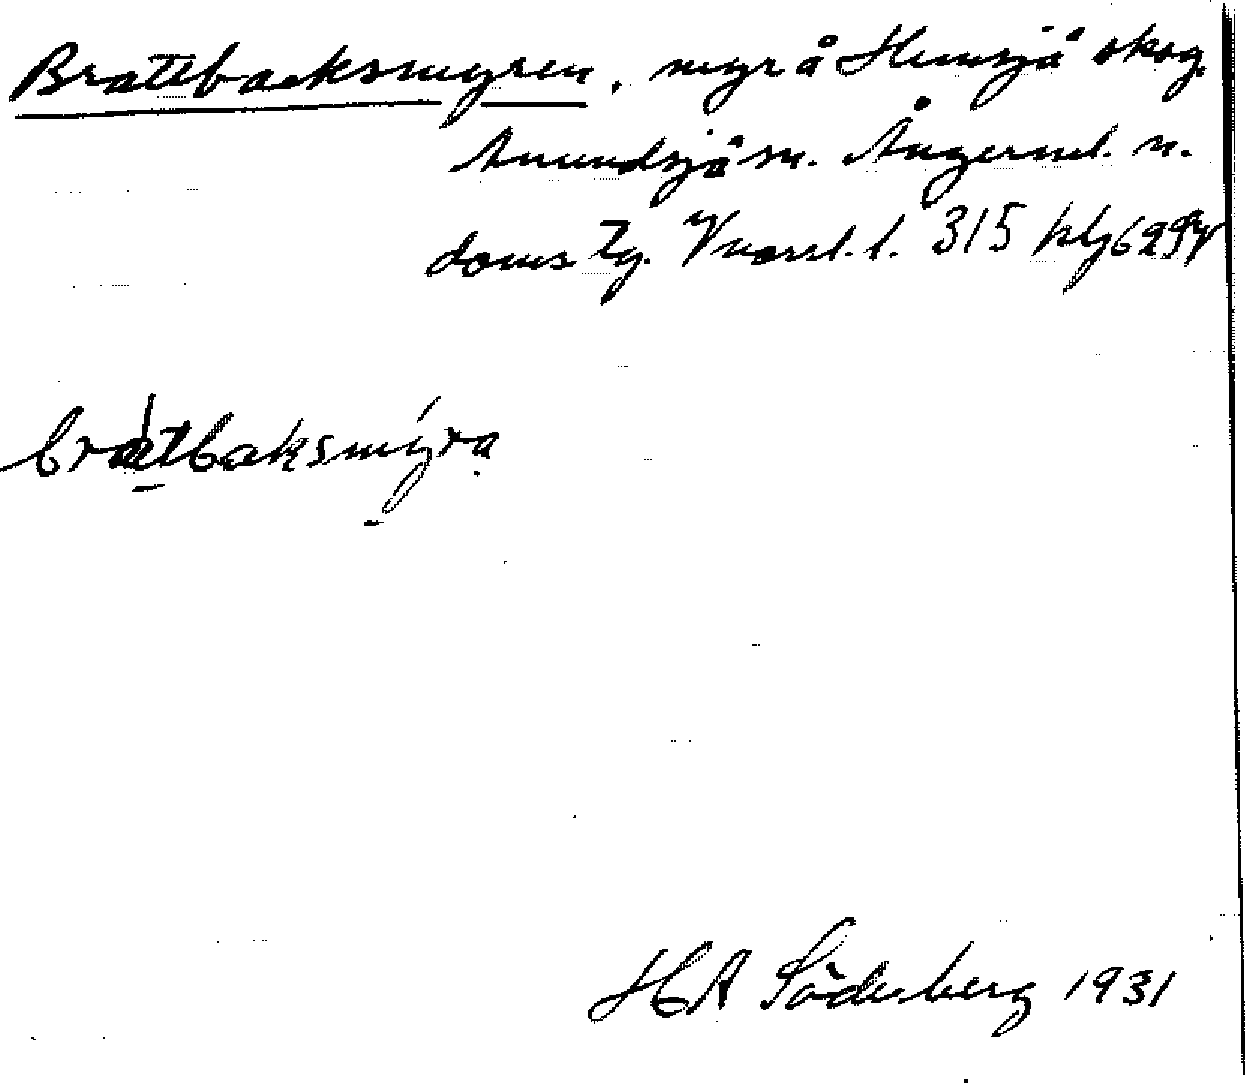 Brattbacksmyren, myr å Hemsjö skog.
Anundsjö sn. Ångerml. n.
doms Tg. Västl. l. 315
brattbaksmýra
HA Söderberg 1931